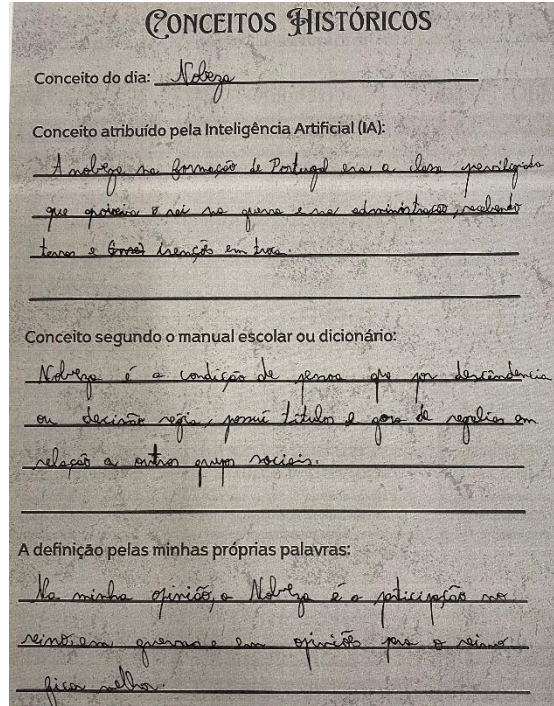 CONCEITOS HISTÓRICOS
Conceito do dia: Nobreza
Conceito atribuído pela Inteligência Artificial (IA):
A nobreza na formação de Portugal era a classe privilegiada
que apoiava o rei na guerra e na administração, recebendo
terras e isenções em troca.
Conceito segundo o manual escolar ou dicionário:
Nobreza é a condição de pessoa que por descendência
ou decisão régia, possuí títulos e goza de regalias em
relação a outros grupos sociais.
A definição pelas minhas próprias palavras:
Na minha opinião, a Nobreza é a participação no
reino, em guerras e em opiniões para o reino
ficar melhor.